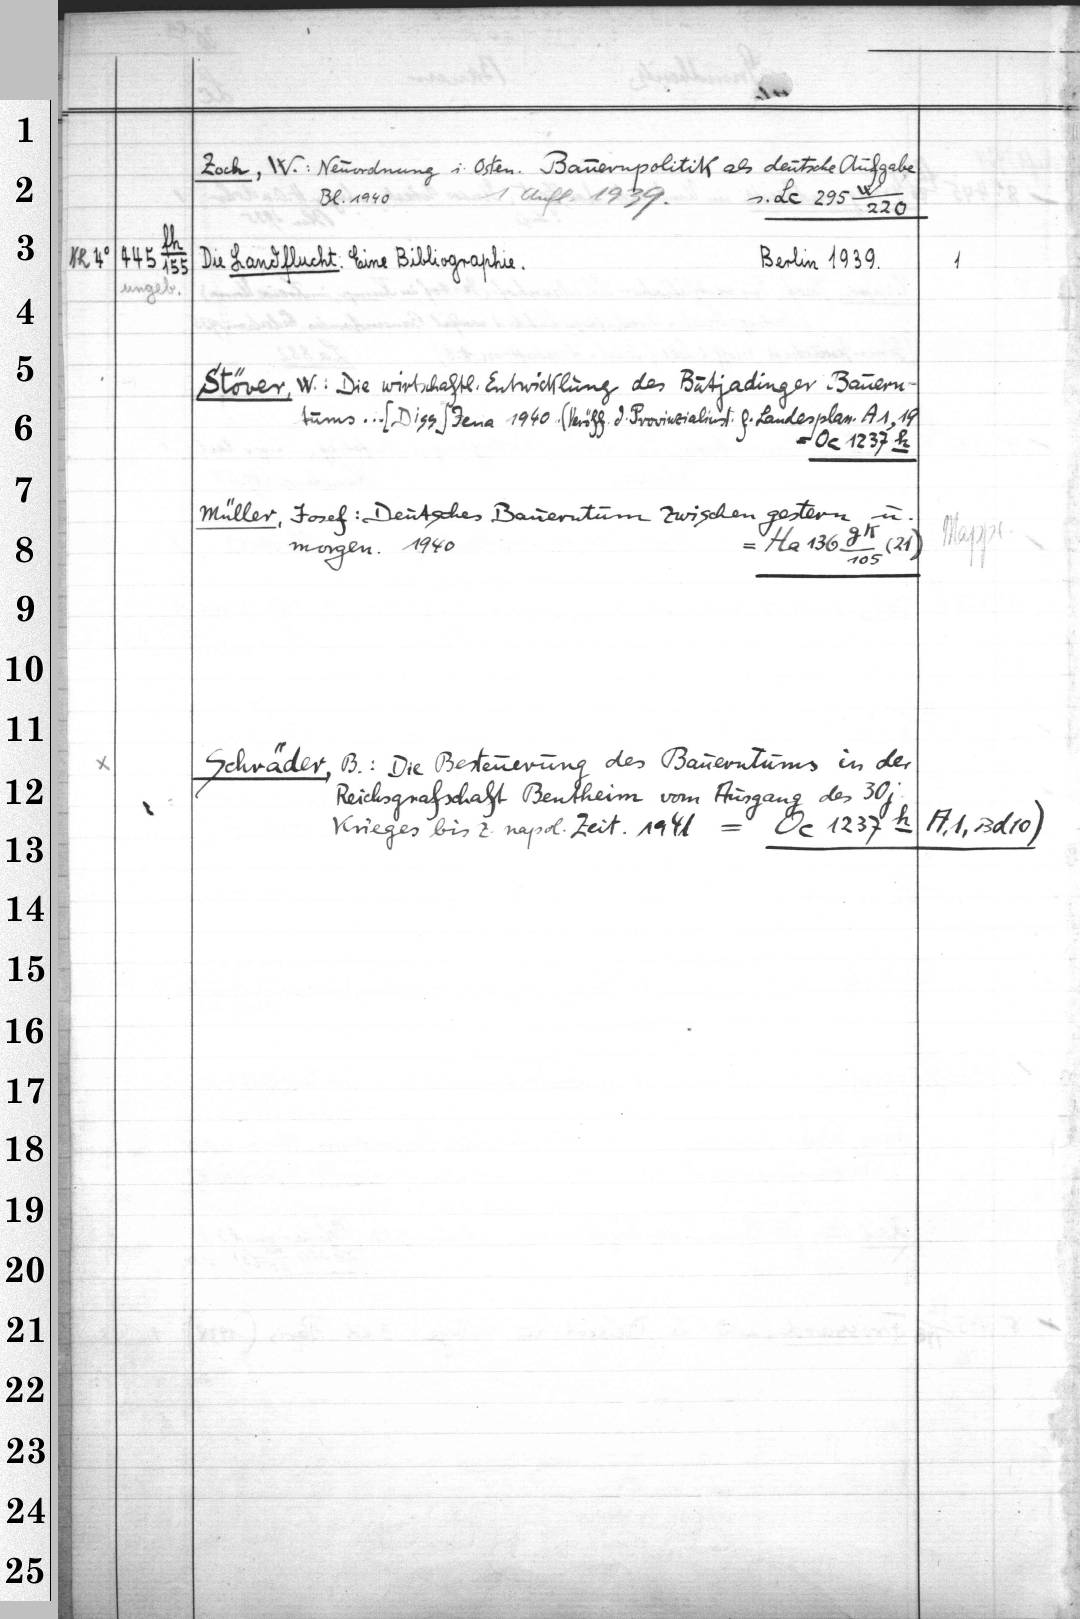 1
2
3
4
5
6
7
8
9
10
11
12
13
14
15
16
17
18
19
20
21
22
23
24
25
Zoch, W.: Neuordnung i. Osten. Bauernpolitik als deutsche Aufgabe
Bl. 1940 1 Aufl. 1939. s. Lc 295 w/220
4° 445 fh/155 Die Landflucht. Eine Bibliographie. Berlin 1939. 1
ungeb.
Stöver, W.: Die wirtschaftl. Entwicklung des Butjadinger Bauern-
tums ... [Diss] Jena 1940 (Veröff. d. Provinzialinst. f. Landesplan. A 1, 19
= Oc 1237 h
Müller, Josef: Deutsches Bauerntum zwischen gestern u.
morgen. 1940 = Ha 136 gk/105 (21) Mappe.
x Schräder, B.: Die Besteuerung des Bauerntums in der
Reichsgrafschaft Bentheim vom Ausgang des 30j.
Krieges bis z. napol. Zeit. 1941 = Oc 1237 h A,1, Bd 10)